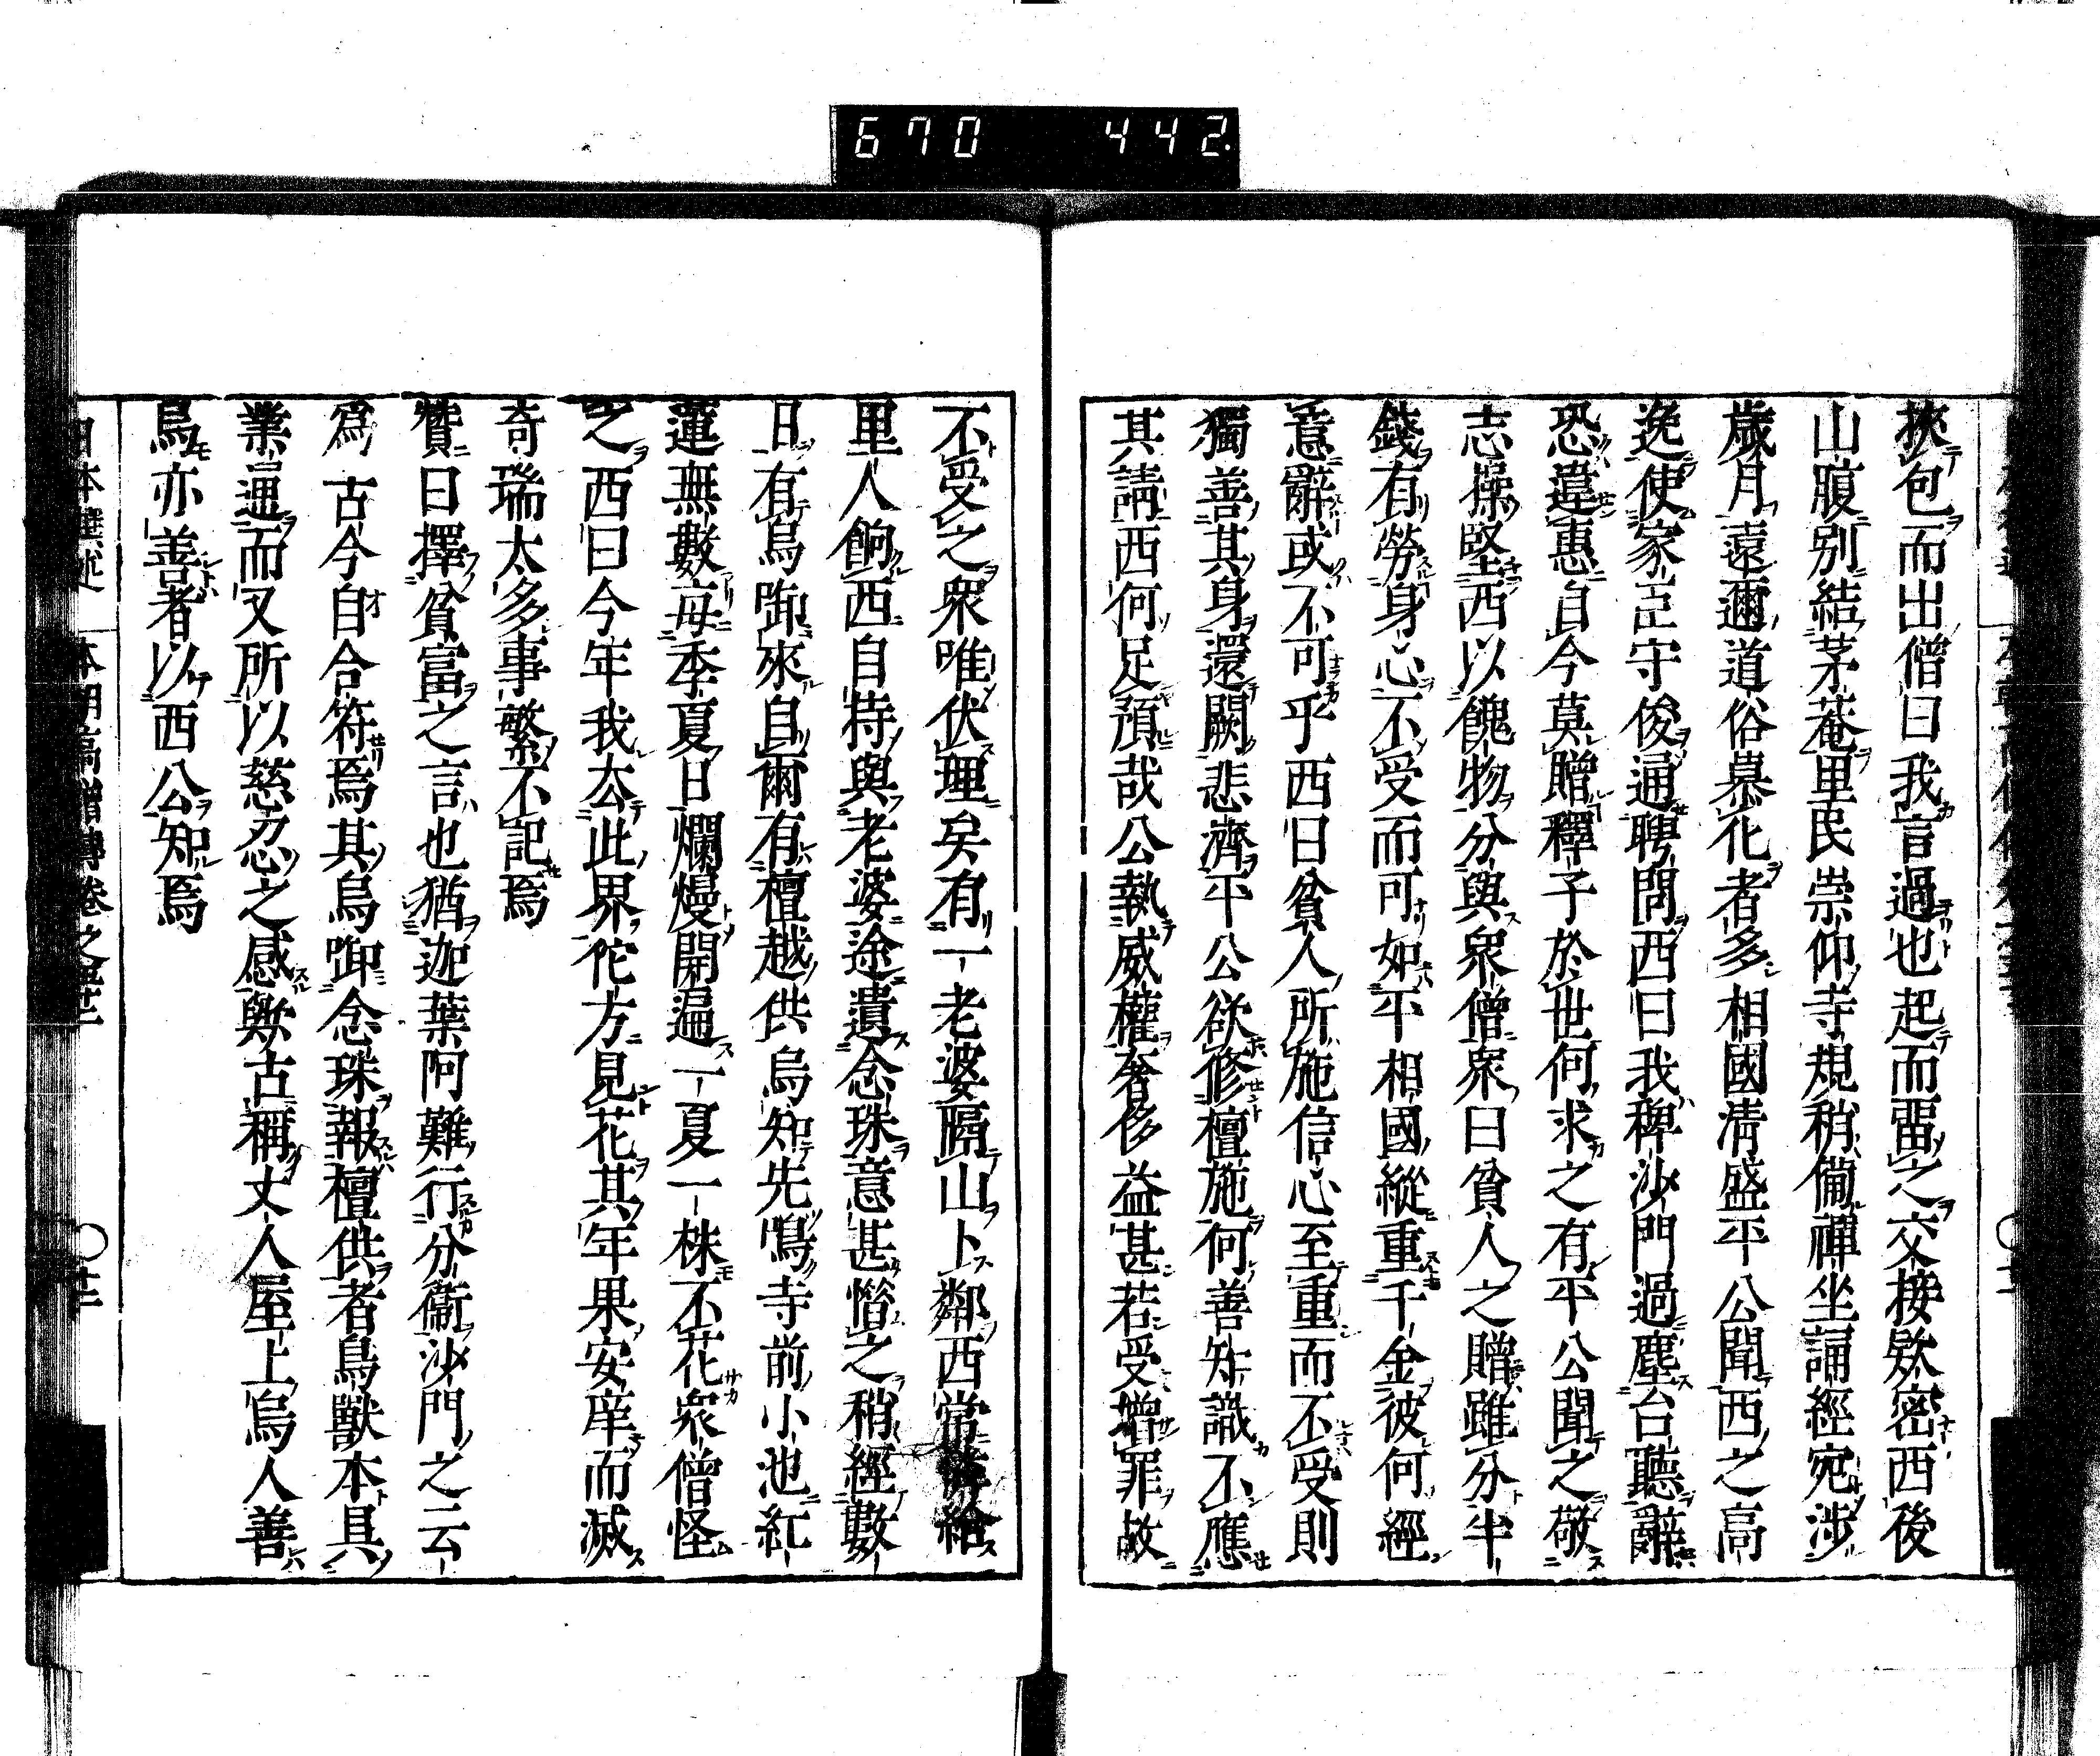 670 442
挾包而出僧曰我言過也起而畱之交接欵密西後
山腹別結茅菴里民崇仰寺規稍備禪坐誦經宛涉
歲月遠邇道俗慕化者多相國淸盛平公聞西之高
逸使家臣守俊通聘問西曰我稗沙門過塵台聽辭
恐違惠自今莫贈釋子於世何求之有平公聞之敬
志操堅西以餽物分與衆僧衆曰貧人之贈雖分半
錢有勞身心不受而可如平相國縱重千金彼何經
意辭或不可乎西曰貧人所施信心至重而不受則
獨善其身還闕悲濟平公欲修檀施何善知識不應
其請西何足預哉公執威權奢侈益甚若受增罪故
不受之衆唯伏理矣有一老婆隔山卜鄰西常憐給
里人餉西自持與老婆途遺念珠意甚惜之稍經數
日有烏啣來自爾有檀越供烏知先鳴寺前小池紅
蓮無數每季夏日爛熳開遍一夏一株不花衆僧怪
之西曰今年我去此界佗方見花其年果安庠而滅
奇瑞太多事繁不記焉
贊曰擇貧富之言也猶迦葉阿難行分衞沙門之云
爲古今自合符焉其烏啣念珠報檀供者鳥獸本具
業通而又所以慈忍之感歟古稱丈人屋上烏人善
烏亦善者以西公知焉
日本撰述 本朝高僧傳卷之